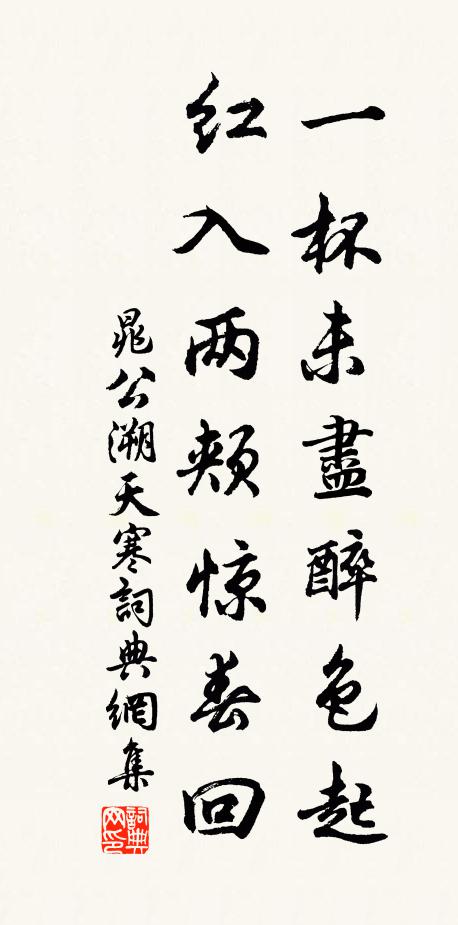 一杯未盡醉色起
红入两颊惊春回
晁公溯天寒詞典網集
詞典网印